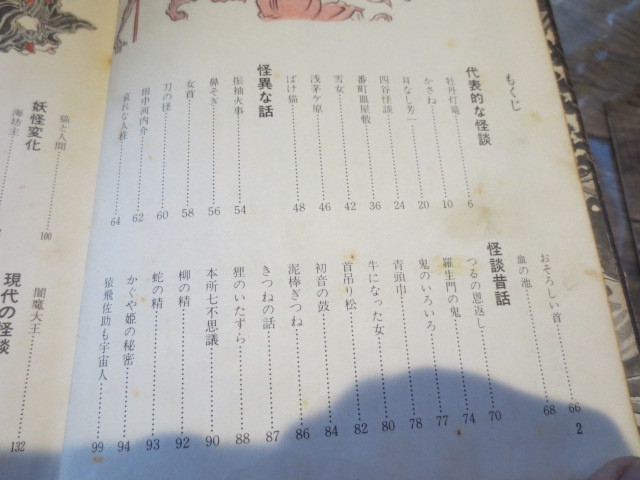 もくじ
代表的な怪談
牡丹灯籠 6
かさね 10
耳なし芳一 20
四谷怪談 24
番町皿屋敷 36
雪女 42
浅茅ケ原 46
ばけ猫 48
怪異な話
振袖火事 54
鼻そぎ 56
女首 58
刀の怪 60
田中河内介 62
哀れな人柱 64
おそろしい首 66
血の池 68
怪談昔話
つるの恩返し 70
羅生門の鬼 74
鬼のいろいろ 77
青頭巾 78
牛になった女 80
首吊り松 82
初音の鼓 84
泥棒ぎつね 86
きつねの話 87
狸のいたずら 88
本所七不思議 90
柳の精 92
蛇の精 93
かぐや姫の秘密 94
猿飛佐助も宇宙人 99
2
猫と人間 100
妖怪変化
海坊主
閻魔大王 132
現代の怪談